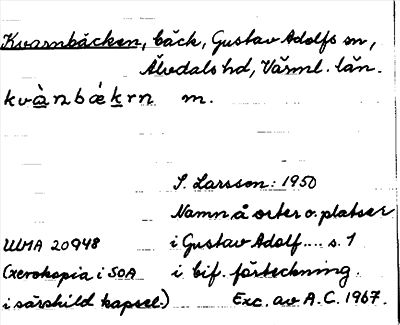 Kvarnbäcken, bäck, Gustav Adolfs sn,
Älvdals hd, Värml. län.
kvànbǽkrn m.
S. Larsson: 1950
Namn å orter o. platser
ULMA 20948 i Gustav Adolf.... s. 1
(xerokopia i SOA i bif. förteckning.
i särskild kapsel.) Exc. av A.C. 1967.